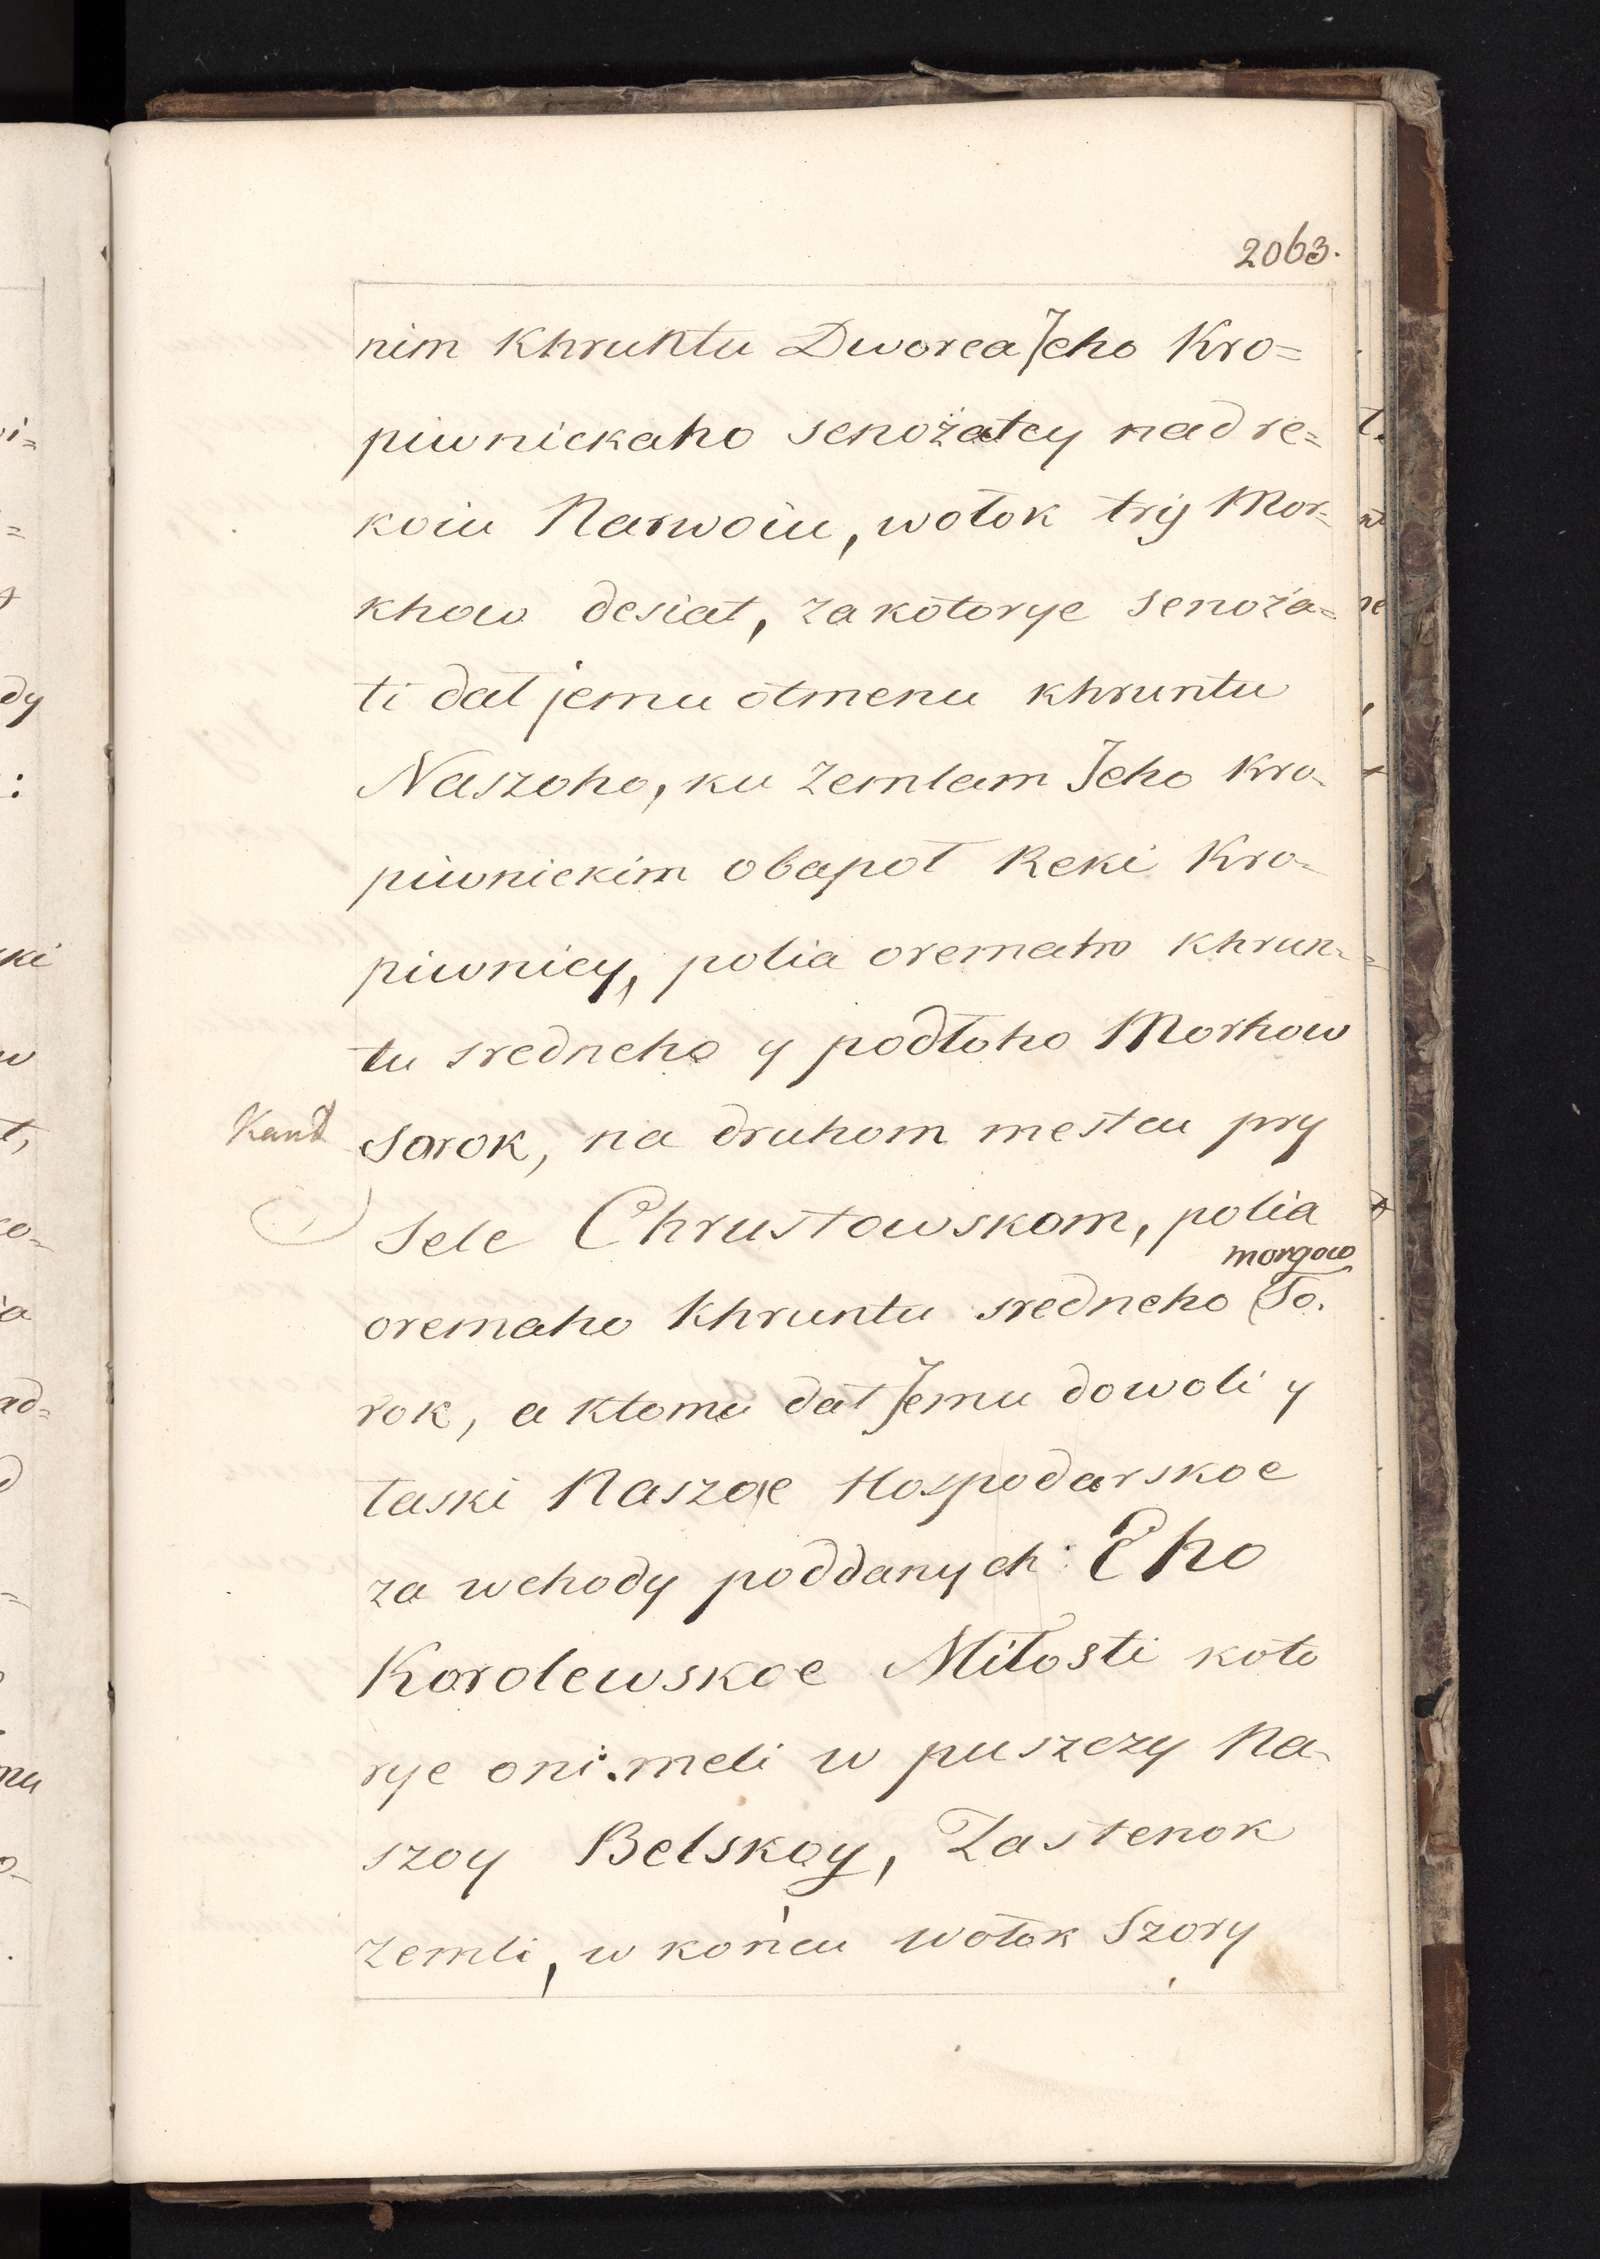 2063.
nim Khruntu Dworca Jeho Kro=
piwnickaho senożatey nad re=
koiu Narwoiu, wołok try Mor=
khow desiat, za kotorye senoża=
ti dał jemu otmenu khruntu
Naszoho, ku zemlam Jeho Kro-
piwnickim obapoł Reki Kro-
piwnicy, polia oremaho Khrun=
tu sredneho y podłoho Morhow
sorok, na druhom mestcu pry
Sele Chrustowskom, polia
morgow
oremaho Khruntu sredneho So.
rok, a ktomu dał Jemu dowoli y
łaski Naszoe Hospodarskoe
za wchody poddanych: Eho
Korolewskoe Miłosti koto
rye oni meli w puszczy Na-
szoy Belskoy, Zastenok
zemli, w końcu wołok Szory